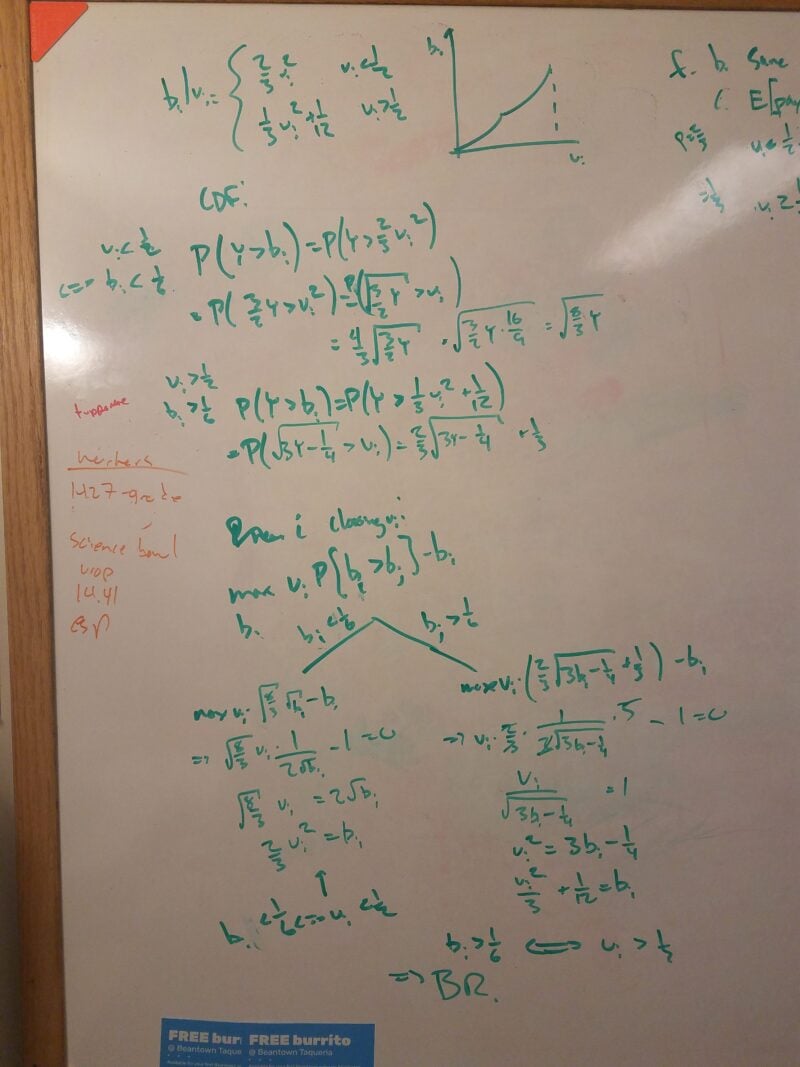 b_i|v_i = { 2/3 v_i^2   v_i < 1/2
1/3 v_i^2 + 1/12   v_i > 1/2
b_i
v_i
f. b. Same
c. E[pay
v_i < 1/2
= 1/3   v_i ≥ 1/2
CDF:
v_i < 1/2
<=> b_i < 1/6
P(Y > b_i) = P(Y > 2/3 v_i^2)
= P(3/2 Y > v_i^2) = P(√(3/2 Y) > v_i)
= 4/3 √(3/2 Y) = √(3/2 Y · 16/9) = √(8/3 Y)
v_i > 1/2
b_i > 1/6
P(Y > b_i) = P(Y > 1/3 v_i^2 + 1/12)
= P(√(3Y - 1/4) > v_i) = 2/3 √(3Y - 1/4) + 1/3
tupperware
Science bowl
urop
14.41
esp
i choosing
max v_i P{b_i > b_j} - b_i
b_i
b_i < 1/6
b_i > 1/6
max v_i · √(8/3) √b_i - b_i
=> √(8/3) v_i · 1/(2√b_i) - 1 = 0
√(8/3) v_i = 2√b_i
2/3 v_i^2 = b_i
↑
b_i < 1/6 <=> v_i < 1/2
max v_i · (2/3 √(3b_i - 1/4) + 1/3) - b_i
=> v_i · 2/3 · 1/(2√(3b_i - 1/4)) · 3 - 1 = 0
v_i/√(3b_i - 1/4) = 1
v_i^2 = 3b_i - 1/4
v_i^2/3 + 1/12 = b_i
b_i > 1/6 <=> v_i > 1/2
=> BR.
FREE bur FREE burrito
@ Beantown Taque @ Beantown Taqueria